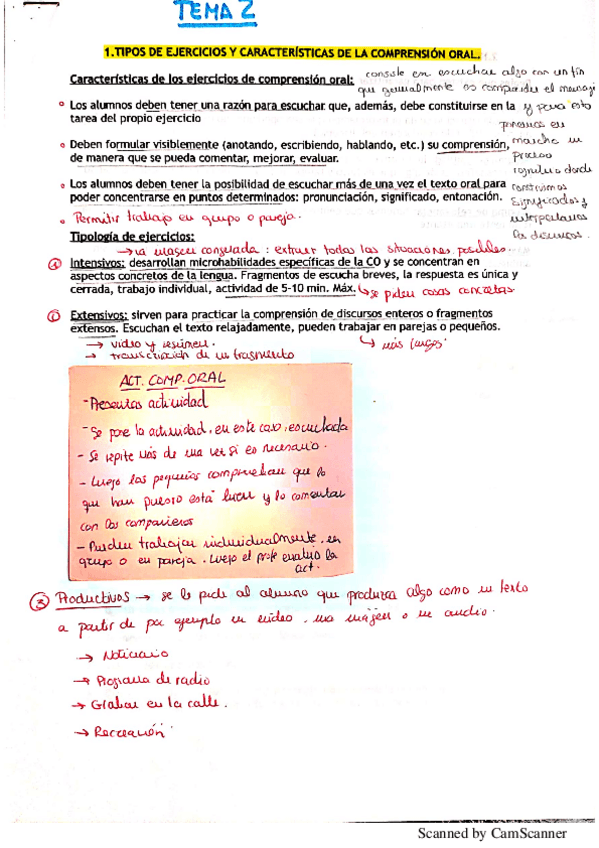 TEMA 2
1.TIPOS DE EJERCICIOS Y CARACTERÍSTICAS DE LA COMPRENSIÓN ORAL.
Características de los ejercicios de comprensión oral: consiste en escuchar algo con un fin
que generalmente es comprender el mensaje
Los alumnos deben tener una razón para escuchar que, además, debe constituirse en la y para esto
tarea del propio ejercicio
ponemos en
Deben formular visiblemente (anotando, escribiendo, hablando, etc.) su comprensión, marcha un
de manera que se pueda comentar, mejorar, evaluar. proceso
donde
Los alumnos deben tener la posibilidad de escuchar más de una vez el texto oral para construimos
poder concentrarse en puntos determinados: pronunciación, significado, entonación. significados y
Permitir trabajo en grupo o pareja. interpretamos
los discursos.
Tipología de ejercicios:
→ la imagen congelada: extraer todas las situaciones posibles
① Intensivos: desarrollan microhabilidades específicas de la CO y se concentran en
aspectos concretos de la lengua. Fragmentos de escucha breves, la respuesta es única y
cerrada, trabajo individual, actividad de 5-10 min. Máx. se piden cosas concretas
Extensivos: sirven para practicar la comprensión de discursos enteros o fragmentos
extensos. Escuchan el texto relajadamente, pueden trabajar en parejas o pequeños.
→ video y resumen. más largos.
→ transcripción de un fragmento
ACT. COMP. ORAL
- Presentas actividad
- Se pone la actividad, en este caso, escuchada
- Se repite más de una vez si es necesario.
- Luego los pequeños comprueban que lo
que han puesto está bien y lo comentan
con los compañeros
- Pueden trabajar individualmente, en
grupo o en pareja. Luego el profe evalúa la
act.
③ Productivos → se le pide al alumno que produzca algo como un texto
a partir de por ejemplo un video, una imagen o un audio.
→ Noticiario
→ Programa de radio
→ Grabar en la calle.
→ Recreación.
Scanned by CamScanner